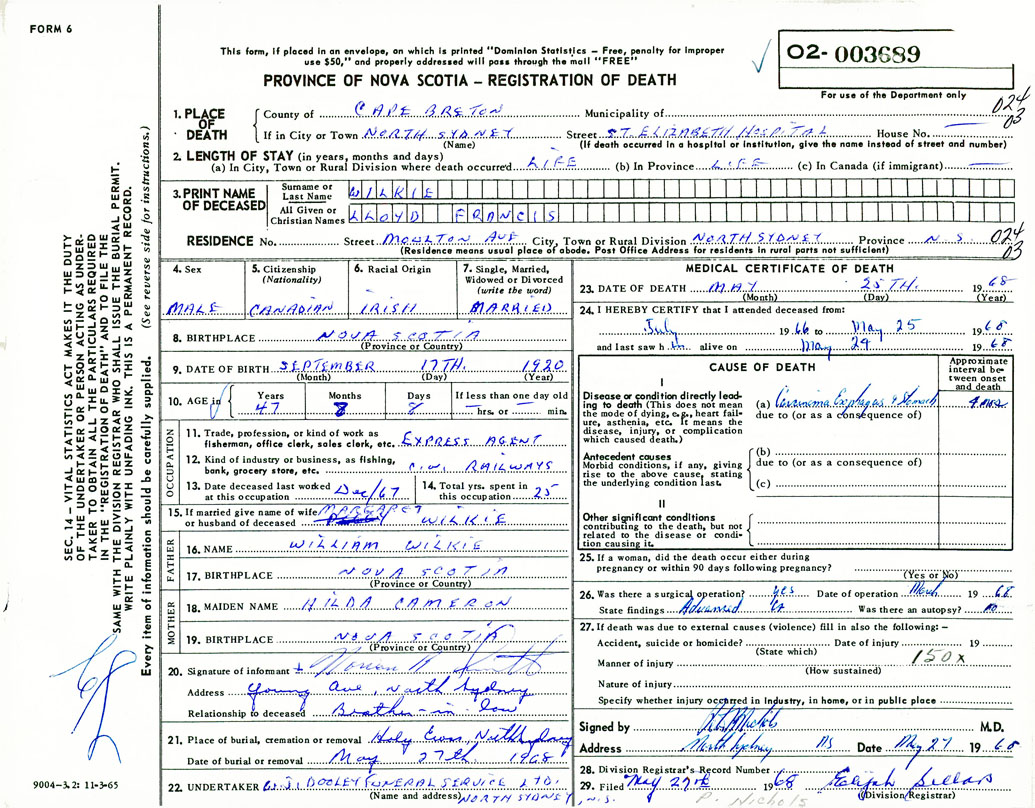 FORM 6
This form, if placed in an envelope, on which is printed "Dominion Statistics – Free, penalty for improper
use $50," and properly addressed will pass through the mail "FREE"
PROVINCE OF NOVA SCOTIA – REGISTRATION OF DEATH
02- 003689
For use of the Department only
024
03
1. PLACE OF DEATH County of CAPE BRETON Municipality of
If in City or Town NORTH SYDNEY Street ST. ELIZABETH HOSPITAL House No. —
(Name) (If death occurred in a hospital or institution, give the name instead of street and number)
2. LENGTH OF STAY (in years, months and days)
(a) In City, Town or Rural Division where death occurred LIFE (b) In Province LIFE (c) In Canada (if immigrant) —
3. PRINT NAME OF DECEASED Surname or Last Name WILKIE
All Given or Christian Names LLOYD FRANCIS
RESIDENCE No. Street MOULTON AVE City, Town or Rural Division NORTH SYDNEY Province N.S. 024 03
(Residence means usual place of abode. Post Office Address for residents in rural parts not sufficient)
4. Sex MALE
5. Citizenship (Nationality) CANADIAN
6. Racial Origin IRISH
7. Single, Married, Widowed or Divorced (write the word) MARRIED
8. BIRTHPLACE NOVA SCOTIA
(Province or Country)
9. DATE OF BIRTH SEPTEMBER 17TH. 1920
(Month) (Day) (Year)
10. AGE in Years 47 Months 8 Days 8 If less than one day old — hrs. or — min.
OCCUPATION
11. Trade, profession, or kind of work as fisherman, office clerk, sales clerk, etc. EXPRESS AGENT
12. Kind of industry or business, as fishing, bank, grocery store, etc. C.N. RAILWAYS
13. Date deceased last worked at this occupation Dec/67
14. Total yrs. spent in this occupation 25
15. If married give name of wife or husband of deceased MARGARET WILKIE
FATHER
16. NAME WILLIAM WILKIE
17. BIRTHPLACE NOVA SCOTIA
(Province or Country)
MOTHER
18. MAIDEN NAME HILDA CAMERON
19. BIRTHPLACE NOVA SCOTIA
(Province or Country)
20. Signature of informant
Address Young Ave, North Sydney
Relationship to deceased Brother-in-law
21. Place of burial, cremation or removal Holy Cross, North Sydney
Date of burial or removal May 27th 1968
22. UNDERTAKER W.J. DOOLEY FUNERAL SERVICE LTD.
(Name and address) NORTH SYDNEY, N.S.
MEDICAL CERTIFICATE OF DEATH
23. DATE OF DEATH MAY 25TH. 1968
(Month) (Day) (Year)
24. I HEREBY CERTIFY that I attended deceased from:
July 1966 to May 25 1968
and last saw him alive on May 24 1968
CAUSE OF DEATH
Approximate interval between onset and death
I
Disease or condition directly leading to death (This does not mean the mode of dying, e.g., heart failure, asthenia, etc. It means the disease, injury, or complication which caused death.)
(a) Carcinoma Esophagus & Stomach 4 mos
due to (or as a consequence of)
Antecedent causes
Morbid conditions, if any, giving rise to the above cause, stating the underlying condition last.
(b)
due to (or as a consequence of)
(c)
II
Other significant conditions contributing to the death, but not related to the disease or condition causing it.
25. If a woman, did the death occur either during
pregnancy or within 90 days following pregnancy?
(Yes or No)
26. Was there a surgical operation? yes Date of operation March 1968
State findings Advanced Ca Was there an autopsy? no
27. If death was due to external causes (violence) fill in also the following: –
Accident, suicide or homicide? Date of injury 19
(State which)
Manner of injury 150x
(How sustained)
Nature of injury
Specify whether injury occurred in industry, in home, or in public place
Signed by M.D.
Address North Sydney NS Date May 27 1968
28. Division Registrar's Record Number
29. Filed May 27th 1968 Elijah Sellars
(Division Registrar)
P. Nichols
SEC. 14 – VITAL STATISTICS ACT MAKES IT THE DUTY
OF THE UNDERTAKER OR PERSON ACTING AS UNDER-
TAKER TO OBTAIN ALL THE PARTICULARS REQUIRED
IN THE "REGISTRATION OF DEATH" AND TO FILE THE
SAME WITH THE DIVISION REGISTRAR WHO SHALL ISSUE THE BURIAL PERMIT.
WRITE PLAINLY WITH UNFADING INK. THIS IS A PERMANENT RECORD.
Every item of information should be carefully supplied. (See reverse side for instructions.)
9004–3.2: 11-3-65